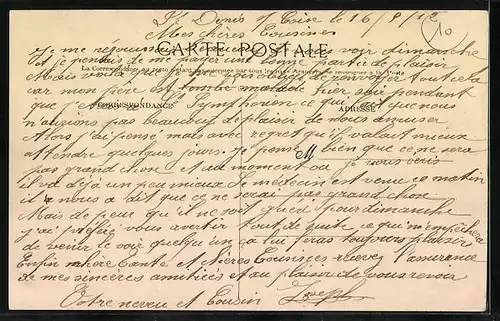 St Denis s/ Loire le 16/8/12
Mes chères Cousines
CARTE POSTALE
Je me réjouissais de vous voir dimanche
et je pensais de me payer une bonne partie de plaisir
La Correspondance au recto n'étant pas acceptée par tous les pays
Mais voilà de renvoyer tout cela
car mon père est tombé malade hier soir pendant
CORRESPONDANCE
ADRESSE
que j'étais Symphorien ce qui fait que nous
n'aurions pas beaucoup de plaisir de nous amuser
Alors j'ai pensé mais avec regret qu'il valait mieux
attendre quelques jours. Je pense bien que ce ne sera
M
pas grand chose et au moment où je vous écris
il va déjà un peu mieux le médecin est venu ce matin
il nous a dit que ce ne serai pas grand chose
Mais de peur qu'il ne soit guéri pour dimanche
j'ai préféré vous avertir tout de suite ce qui m'empêchera
de venir le voir quelqu'un ça lui feras toujours plaisir
Enfin ma chère Tante et chères Cousines recevez l'assurance
de mes sincères amitiées et au plaisir de vous revoir
Votre neveu et Cousin Joseph